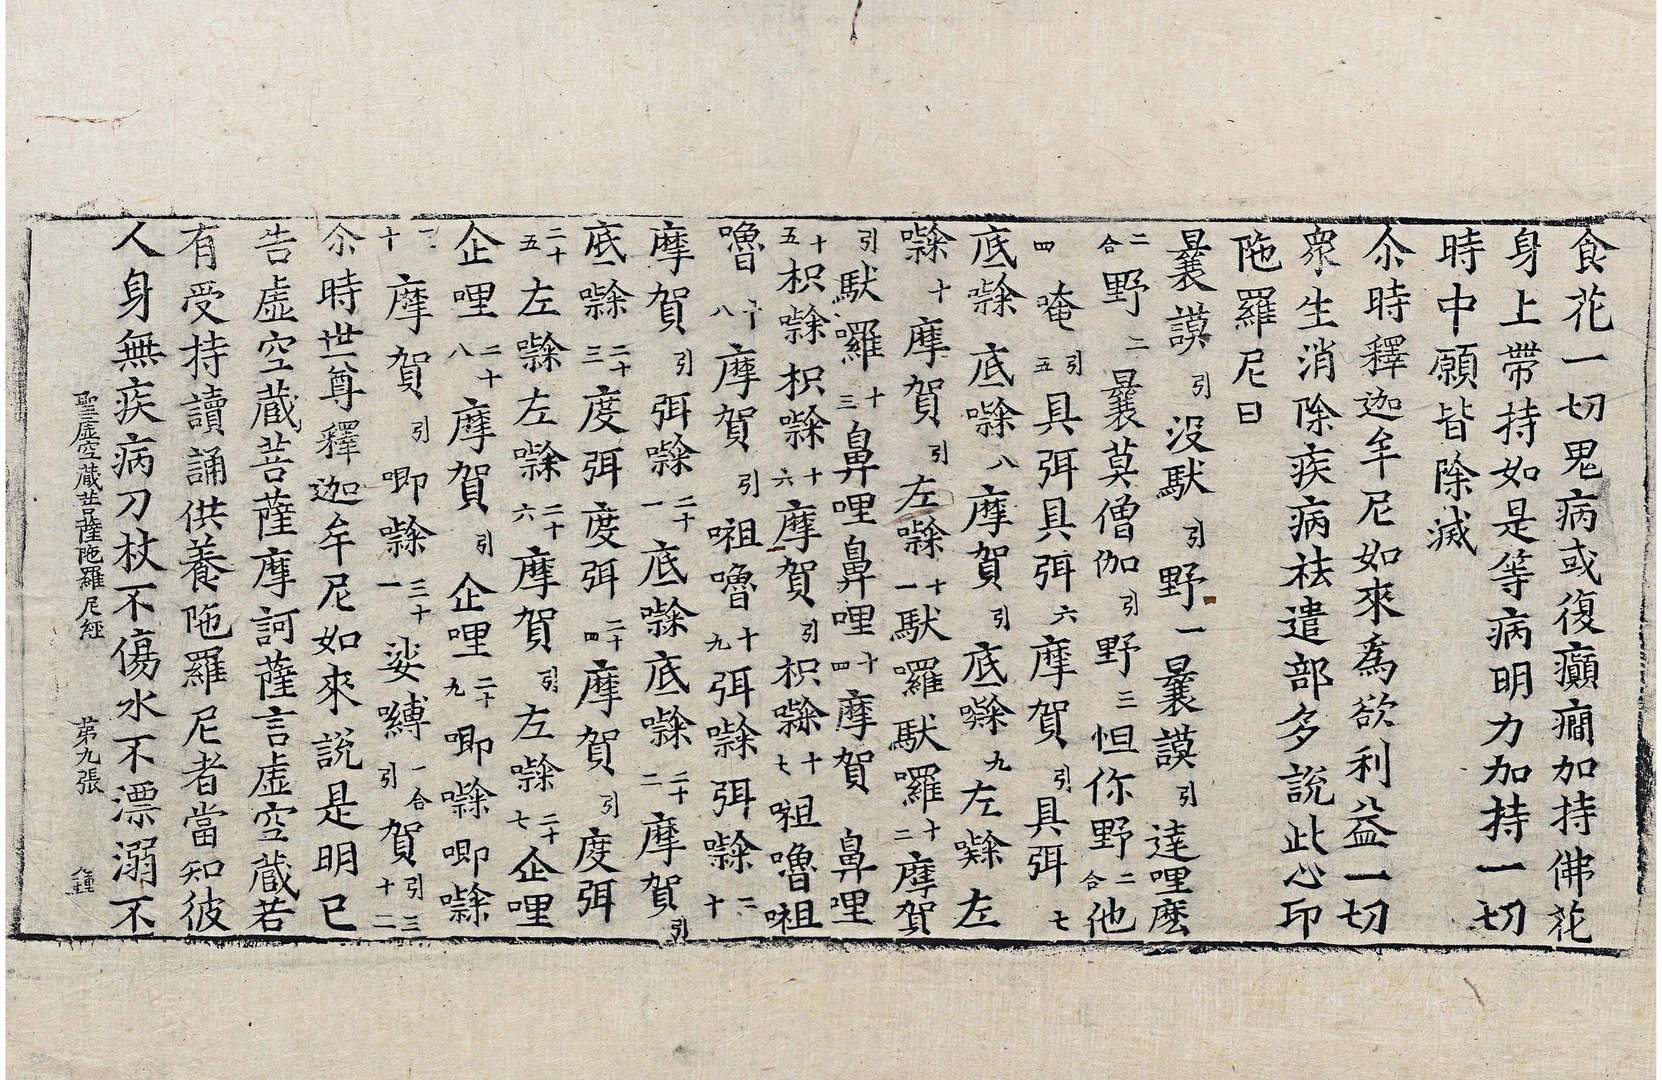 食花一切鬼病或復癲癎加持佛花
身上帶持如是等病明力加持一切
時中願皆除滅
尒時釋迦牟尼如來爲欲利益一切
衆生消除疾病袪遣部多說此心印
陁羅尼曰
曩謨引没馱引野一曩謨引達哩麽
二合野二曩莫僧伽引野三怛你野二合他
四唵引五具弭具弭六摩賀引具弭七
底㘑底㘑八摩賀引底㘑九左㘑左
㘑十摩賀引左㘑十一馱羅馱羅十二摩賀
引馱羅十三鼻哩鼻哩十四摩賀鼻哩
十五枳㘑枳㘑十六摩賀引枳㘑十七㘸嚕㘸
嚕十八摩賀引㘸嚕十九弭㘑弭㘑二十
摩賀引弭㘑二十一底㘑底㘑二十二摩賀引
底㘑二十三度弭度弭二十四摩賀引度弭
二十五左㘑左㘑二十六摩賀引左㘑二十七企哩
企哩二十八摩賀引企哩二十九唧㘑唧㘑
三十摩賀引唧㘑三十一娑縛二合引賀引三十二
尒時世尊釋迦牟尼如來說是明已
告虛空藏菩薩摩訶薩言虛空藏若
有受持讀誦供養陁羅尼者當知彼
人身無疾病刀杖不傷水不漂溺不
聖虛空藏菩薩陁羅尼經 第九張 鍾